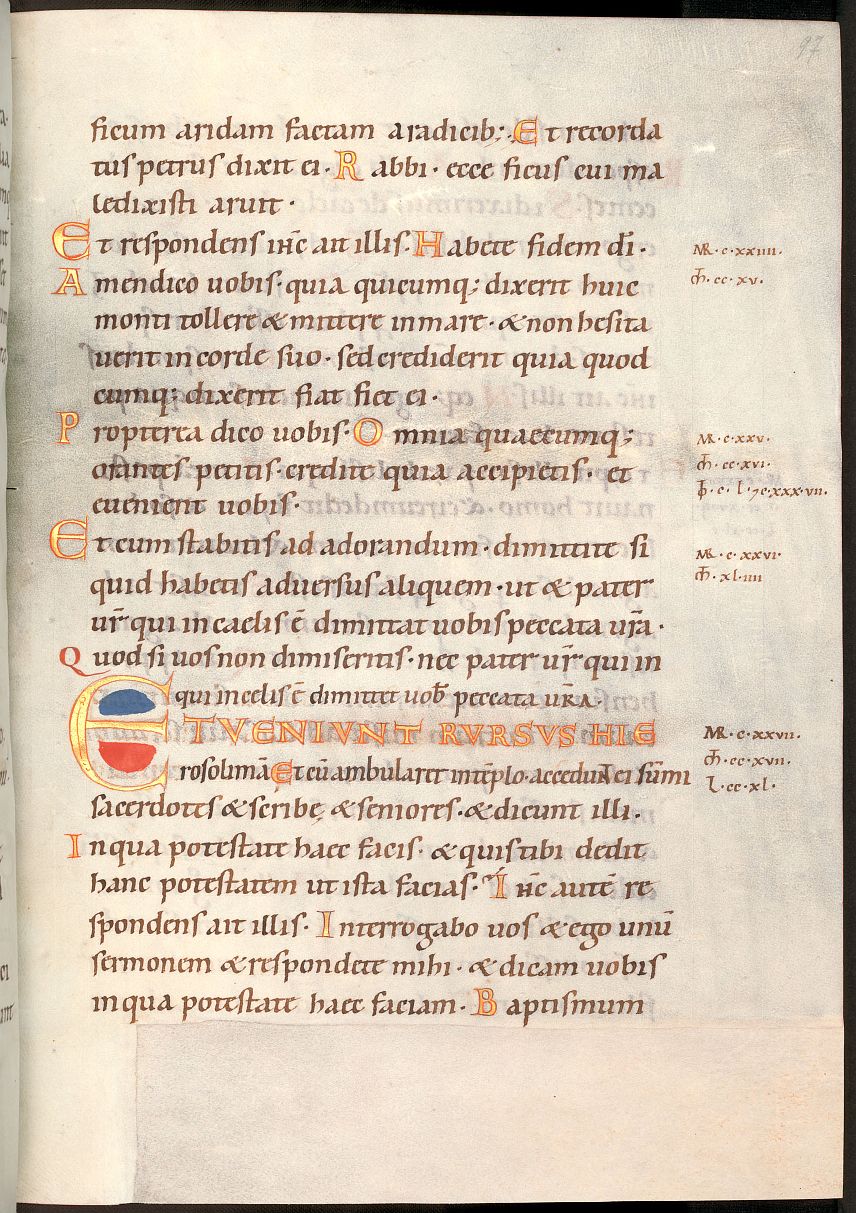 97
ficum aridam factam aradicib; Et recorda
tus petrus dixit ei · Rabbi · ecce ficus cui ma
ledixisti aruit ·
Et respondens ih̄c ait illis · Habete fidem dī ·
MR · c · xxiiii ·
Amendico uobis · quia quicumq; dixerit huic
m̄th · cc · xv ·
monti tollere & mittere inmare · & non hesita
uerit in corde suo · sed crediderit quia quod
cumq; dixerit fiat fiet ei ·
Propterea dico uobis · Omnia quaecumq;
MR · c · xxv ·
orantes petitis · credite quia accipietis · et
m̄th · cc · xvi ·
euenient uobis ·
Et cum stabitis ad adorandum · dimittite si
MR · c · xxvi ·
quid habetis aduersus aliquem · ut & pater
m̄th · xl · iiii
ur̄ qui in caelis ē dimittat uobis peccata ur̄a ·
Quod si uos non dimiseritis · nec pater ur̄ qui in
qui incelis ē dimittet uob̄ peccata UR̄A ·
ET VENIVNT RVRSVS HIE
MR · c · xxvii ·
rosolimā Et cū ambularet intēplo · accedunt ei sūmi
m̄th · cc · xvii ·
L · cc · xl ·
sacerdotes & scribę & seniores · & dicunt illi ·
Inqua potestate haec facis · & quis tibi dedit
hanc potestatem ut ista facias · Ih̄c autē re
spondens ait illis · Interrogabo uos & ego unū
sermonem & respondete mihi · & dicam uobis
inqua potestate haec faciam · Baptismum